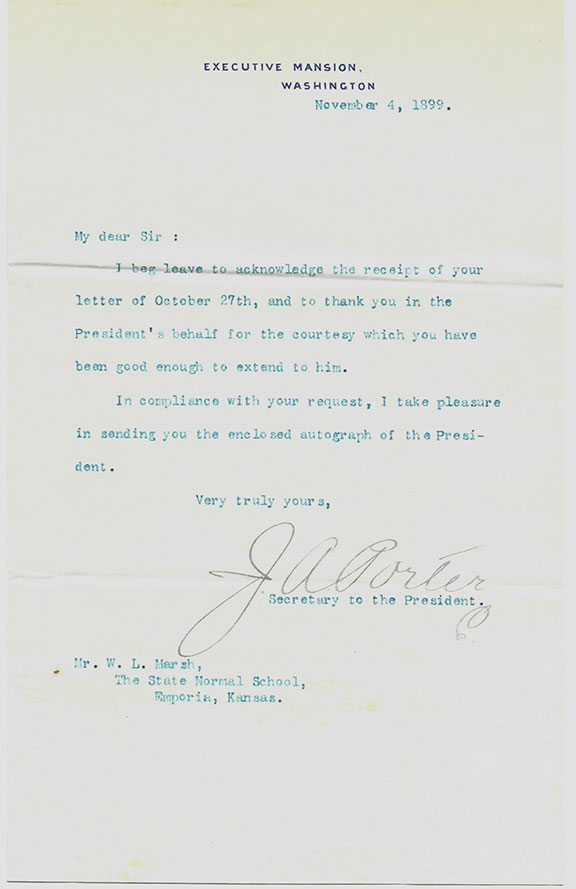 EXECUTIVE MANSION,
WASHINGTON
November 4, 1899.
My dear Sir :
I beg leave to acknowledge the receipt of your
letter of October 27th, and to thank you in the
President's behalf for the courtesy which you have
been good enough to extend to him.
In compliance with your request, I take pleasure
in sending you the enclosed autograph of the Presi-
dent.
Very truly yours,
J A Porter
Secretary to the President.
Mr. W. L. Marsh,
The State Normal School,
Emporia, Kansas.